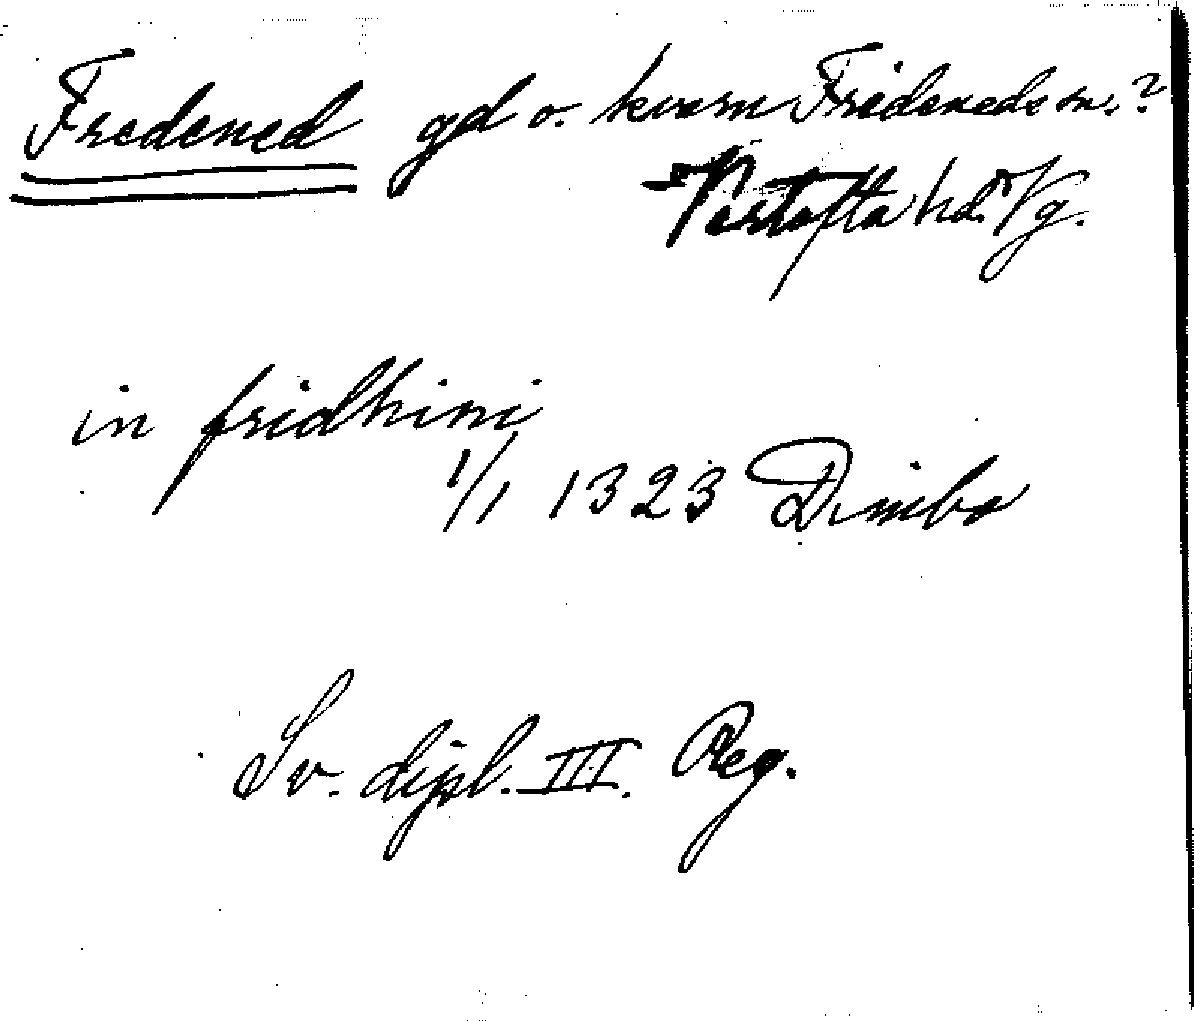 Fredened gd o. kvarn Fridened sn.?
Vartofta hd. Vg.
in fridhini
1/1 1323 Dimbo
Sv. dipl. III. Reg.